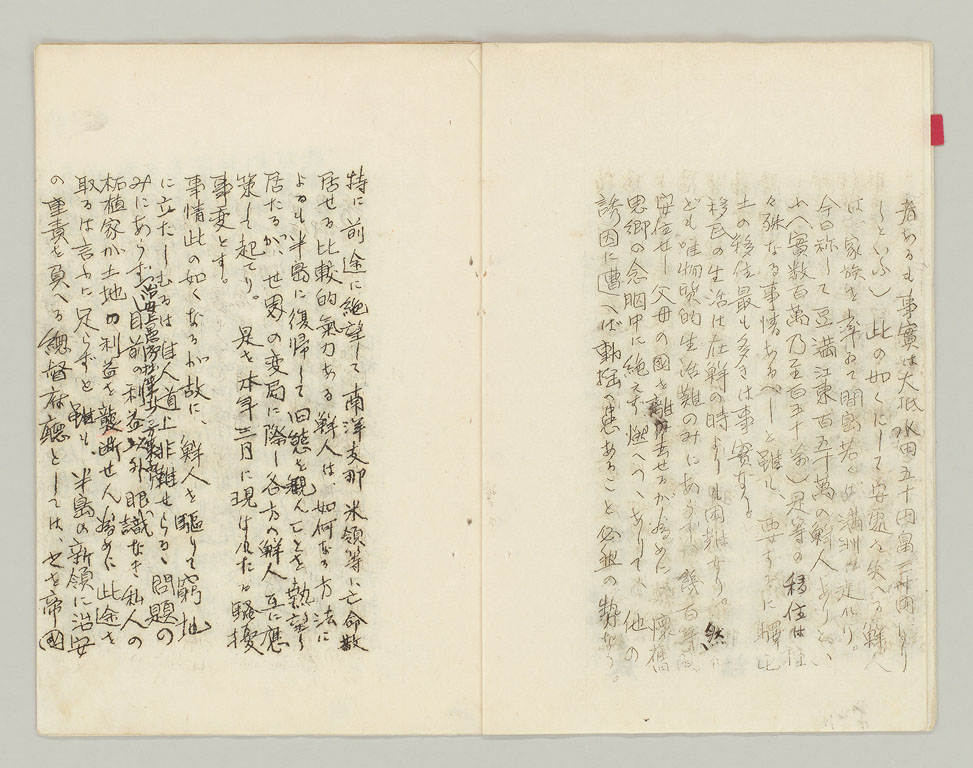 者あるも事實は大抵水田五十円畠三十円なり
しといふ）此の如くにして安處を失へる鮮人
は、家族を率ゐて間島若くは満洲に走れり。
今日称して 豆満江東百五十萬の鮮人ありとい
ふへ實数百萬乃至百五十萬）是等の移住は
々殊なる事情あるべしと雖も、要するに驛屯
土の移住最も多きは事實なり。
移民の生活は在鮮の時よりも困難なり。然
ども唯物質的生活難のみにあらず、
安住せし父母の國を離れ去せるが為めに、懐舊
思郷の念胸中に絶えず燃へつゝありて、他の
誘因に遭へば動揺の患あること必然の勢なり。
特に前途に絶望して南洋支那米領等に亡命散
居せる比較的氣力ある鮮人は、如何なる方法に
よるも半島に復帰して旧態を観んことを熱望し
居たるが、世界の変局に際し各方の鮮人互に應
策して起てり。是を本年三月に現はれたる騒擾
事変とす。
事情此の如くなるが故に、鮮人を駆りて窮地
に立たしむるは惟人道上非難せらるゝ問題の
みにあらず、目前の利益以外眼識なき私人の
拓植家が土地の利益を壟断せん為めに此途を
取るは言ふに足らずと雖も、半島の新領に治安
の重責を負へる總督府廳としては、也を帝國